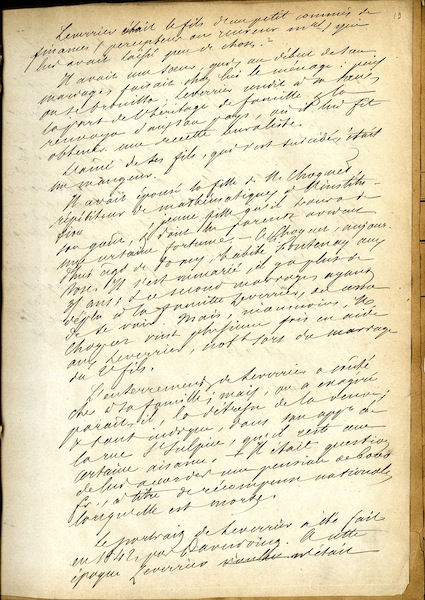 19
Leverrier était le fils d'un petit commis de
finances (percepteur ou receveur mal), qui
lui avait laissé peu de chose.
Il avait une sœur, qui, au début de son
mariage, faisait chez lui le ménage; puis
on se brouilla; Leverrier rendit à sa sœur
la part de l'héritage de famille, et la
renvoya dans son pays, où il lui fit
obtenir une recette buraliste.
L'aîné de ses fils, qui s'est suicidé, était
un mangeur.
Il avait épousé la fille de M. Choquet,
répétiteur de mathématiques à l'institu-
tion
jeune fille qu'il trouva de
son goût, et dont les parents avaient
une certaine fortune. — Choquet, aujour-
d'hui âgé de ans, habite Fontenay aux
Roses. Il s'est remarié, il y a plus de
ans, ce second mariage ayant
déplu à la famille Leverrier, on cessa
de se voir. Mais, néanmoins, M.
Choquet vint plusieurs fois en aide
aux Leverrier, notamment lors du mariage
du 2e fils.
L'enterrement de Leverrier a coûté
cher à sa famille; mais, on a exagéré
paraît-il, la détresse de la veuve;
tout indique, dans son appt de
la rue St Sulpice, qu'il reste une
certaine aisance. Il était question
de lui accorder une pension de
fr., à titre de récompense nationale,
lorsqu'elle est morte.
Le portrait de Leverrier a été fait
en 1842, par Daverdoing. A cette
époque Leverrier n'était